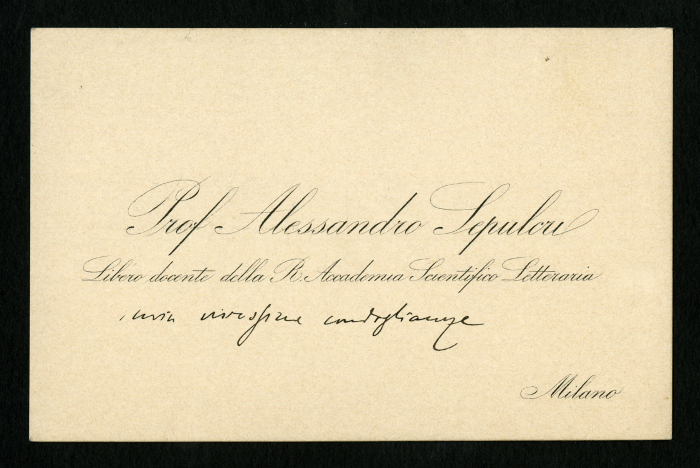 Prof Alessandro Sepulcri
Libero docente della R. Accademia Scientifico Letteraria
invia vivissime condoglianze
Milano